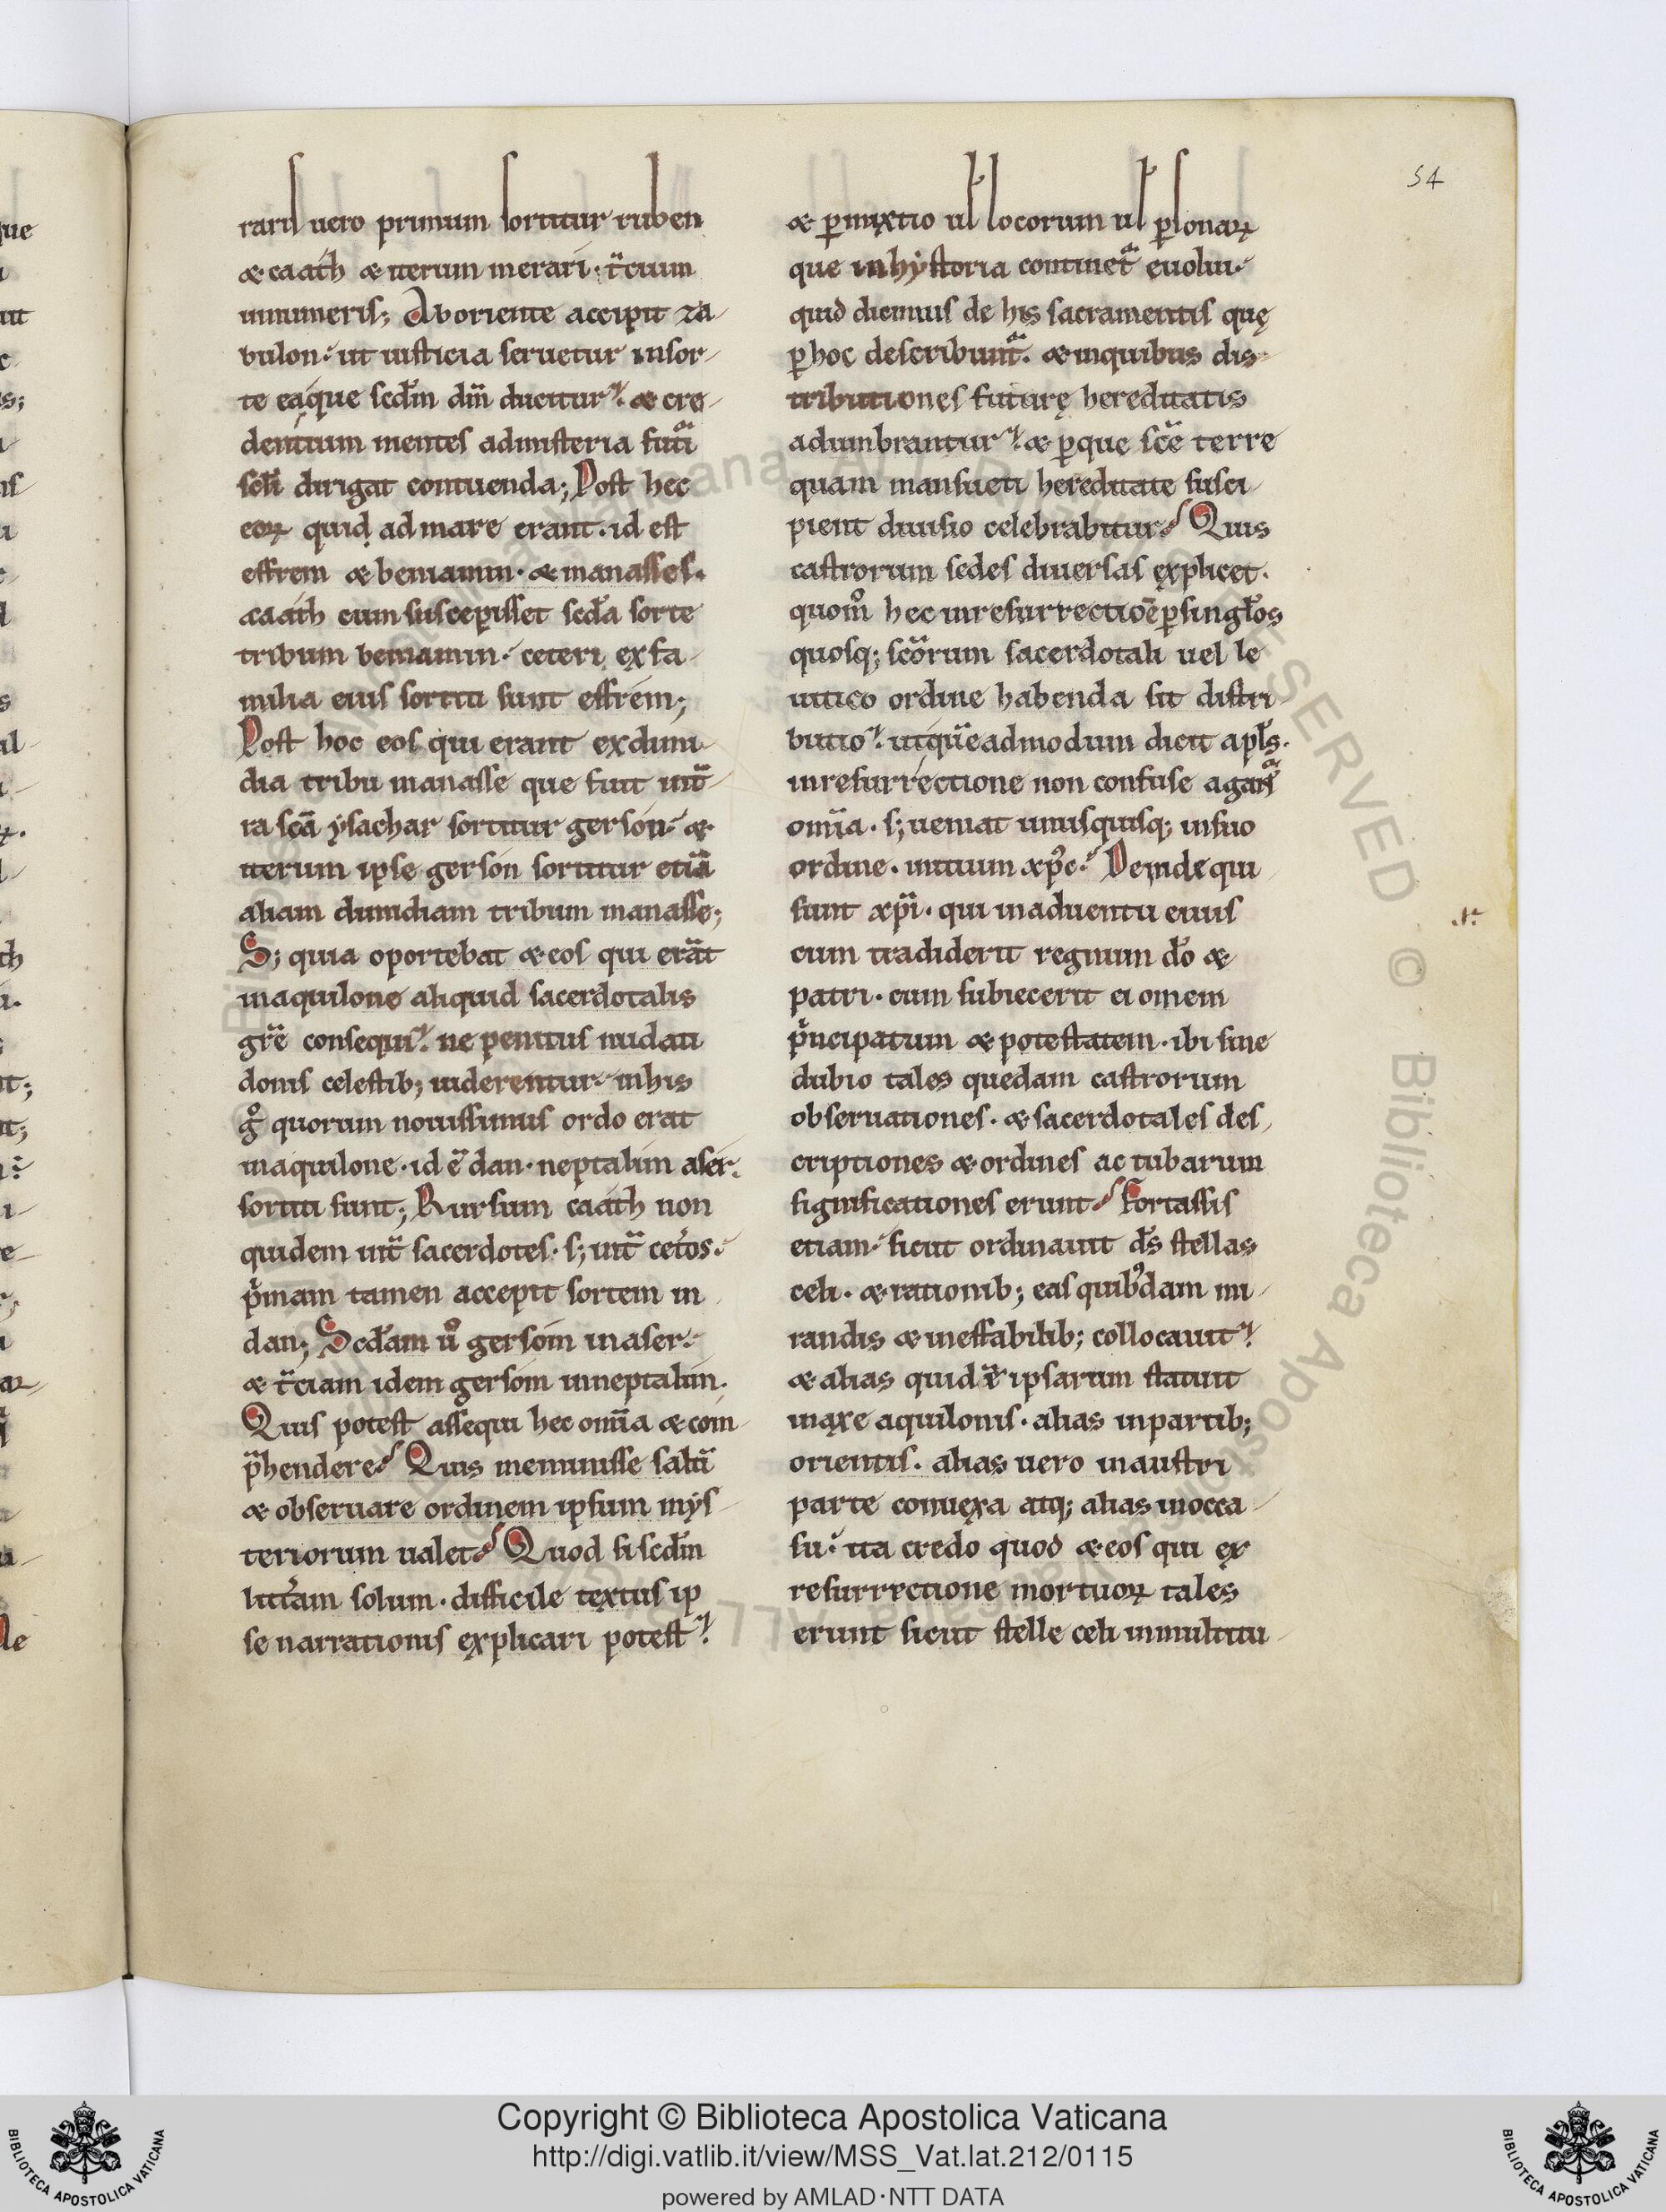 54
rarii uero primum sortitur ruben
& caath & iterum merari· t̄cium
innumeris; Ab oriente accipit za-
bulon· ut iusticia seruetur in sor-
te eaque scd̄m dn̄i ducitur· & cre-
dentium mentes ad misteria futᵃi
sc̄li dirigat contuenda; Post hec
eoꝝ quid ad mare erant· id est
effrem & beniamin· & manasses·
caath cum suscepisset scd̄a sorte
tribum beniamin· ceteri ex fa-
milia eius sortiti sunt effrem;
Post hoc eos qui erant ex dimi-
dia tribu manasse que fuit int̄-
ra sc̄a ysachar sortitur gerson· &
iterum ipse gerson sortitur etiā
aliam dimidiam tribum manasse;
S; quia oportebat & eos qui erāt
in aquilone aliquid sacerdotalis
gr̄e consequi· ne penitus nudati
donis celestib; uiderentur· in his
gͦ quorum nouissimus ordo erat
in aquilone· id ē dan· neptalim aser·
sortiti sunt; Rursum caath non
quidem int̄ sacerdotes· s; int̄ cet̄os·
pⁱmam tamen accepit sortem in
dan; Scd̄am uͦ gersom in aser·
& t̄ciam idem gersom in neptalim·
Quis potest assequi hec om̄ia & com-
p̄hendere? Quis meminisse saltī
& obseruare ordinem ipsum mys-
teriorum ualet? Quod si scd̄m
litt̄am solum· difficile textus ip
se narrationis explicari potest·
& ꝑmixtio ul̄ locorum ul̄ ꝑsonaꝝ
que in hystoria continetᵃ euolui·
quid dicimus de his sacramentis quę
ꝑ hoc describuntᵃ· & in quibus dis-
tributiones futurę hereditatis
adumbrantur· & ꝑque sc̄e terre
quam mansueti hereditate susci-
pient diuisio celebrabitur? Quis
castrorum sedes diuersas explicet·
quom̊ hec in resurrectiōe ꝑ singl̄os
quosq; sc̄orum sacerdotali uel le
uitico ordine habenda sit distri-
butio· ut queādmodum dicit apl̄s·
in resurrectione non confuse agantᵃ
om̄ia· s; ueniat unusquisq; in suo
ordine· initium xp̄c· Deinde qui
sunt xp̄i· qui in aduentu eiuis
cum tradiderit regnum d̄o &
patri· cum subiecerit ei omem
pⁱncipatum & potestatem· ibi sine
dubio tales quedam castrorum
obseruationes· & sacerdotales des-
criptiones & ordines ac tubarum
significationes erunt? Fortassis
etiam· sicut ordinauit d̄s stellas
celi· & rationib; eas quibͦdam mi-
randis & ineffabilib; collocauit·
& alias quid̄ē ipsarum statuit
in axe aquilonis· alias in partib;
orientis· alias uero in austri
parte conuexa atq; alias in occa-
su· ita credo quod & eos qui ex
resurrectione mortuoꝝ tales
erunt sicut stelle celi in multitu-
Copyright © Biblioteca Apostolica Vaticana
http://digi.vatlib.it/view/MSS_Vat.lat.212/0115
powered by AMLAD·NTT DATA